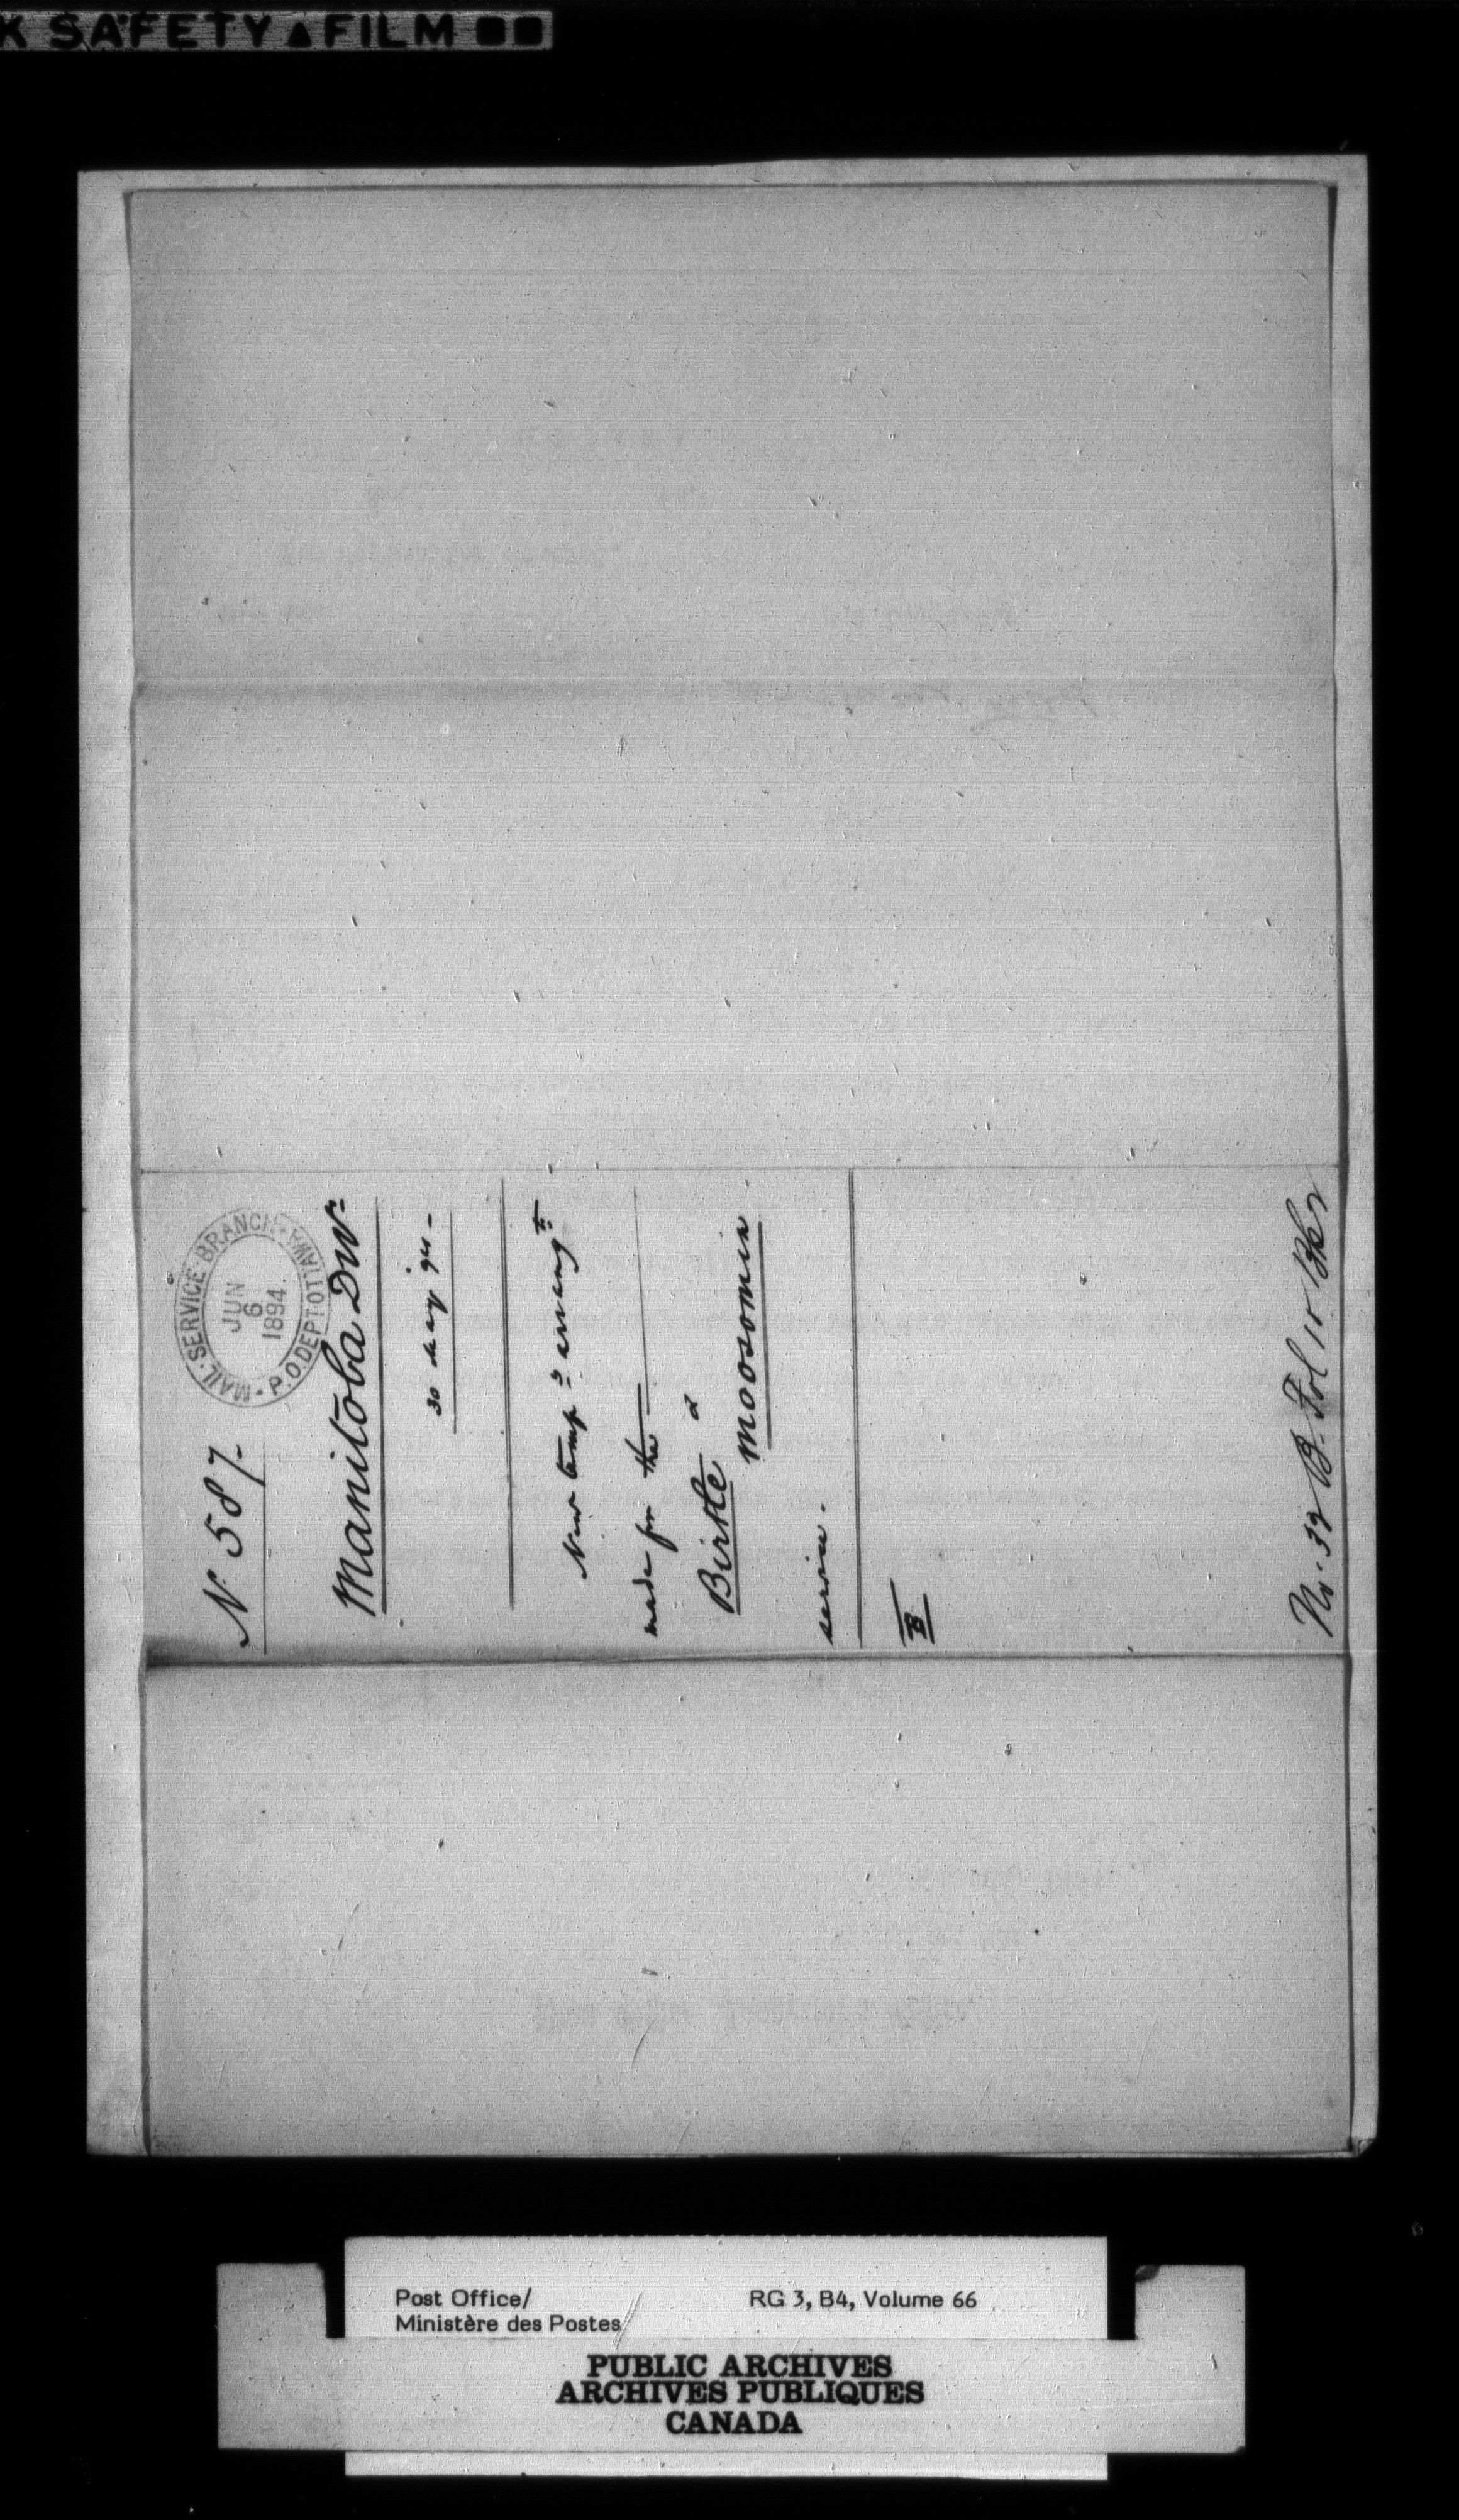 K SAFETY▲FILM
N. 587-
MAIL·SERVICE·BRANCH·
P.O.DEPT OTTAWA
JUN
6
1894.
Manitoba Divn
30 May 94 -
New temp y arrangts
made for the
Birtle &
Moosomin
service.
B
No. 32 B. Fol 11
Post Office/
Ministère des Postes
RG 3, B4, Volume 66
PUBLIC ARCHIVES
ARCHIVES PUBLIQUES
CANADA